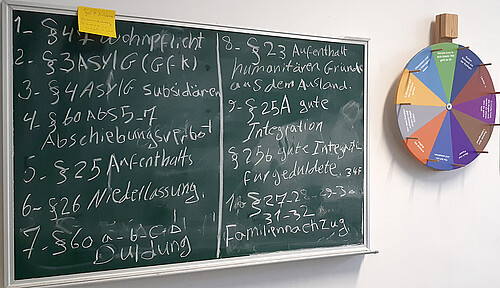 1- § 47 Wohnpflicht
2- § 3 ASYLG (Gfk)
3- § 4 ASYLG subsidiären
4- § 60 Abs 5-7
Abschiebungsverbot
5- § 25 Aufenthalts
6- §26 Niederlassung.
7- § 60 a-b-c-d
Duldung
8- § 23 Aufenthalt
humanitären Grunds
aus dem Ausland.
9- § 25A gute
Integration
§ 25b gute Integratio
für geduldete.
§ 27-28
31-32
Familiennachzug